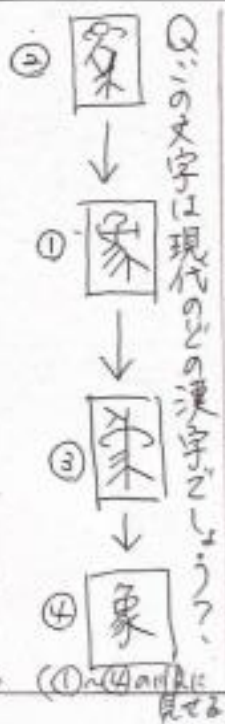 Q.この文字は現代のどの漢字でしょう？
②
↓
①
↓
③
↓
④ 象
(①～④の順に
見せる